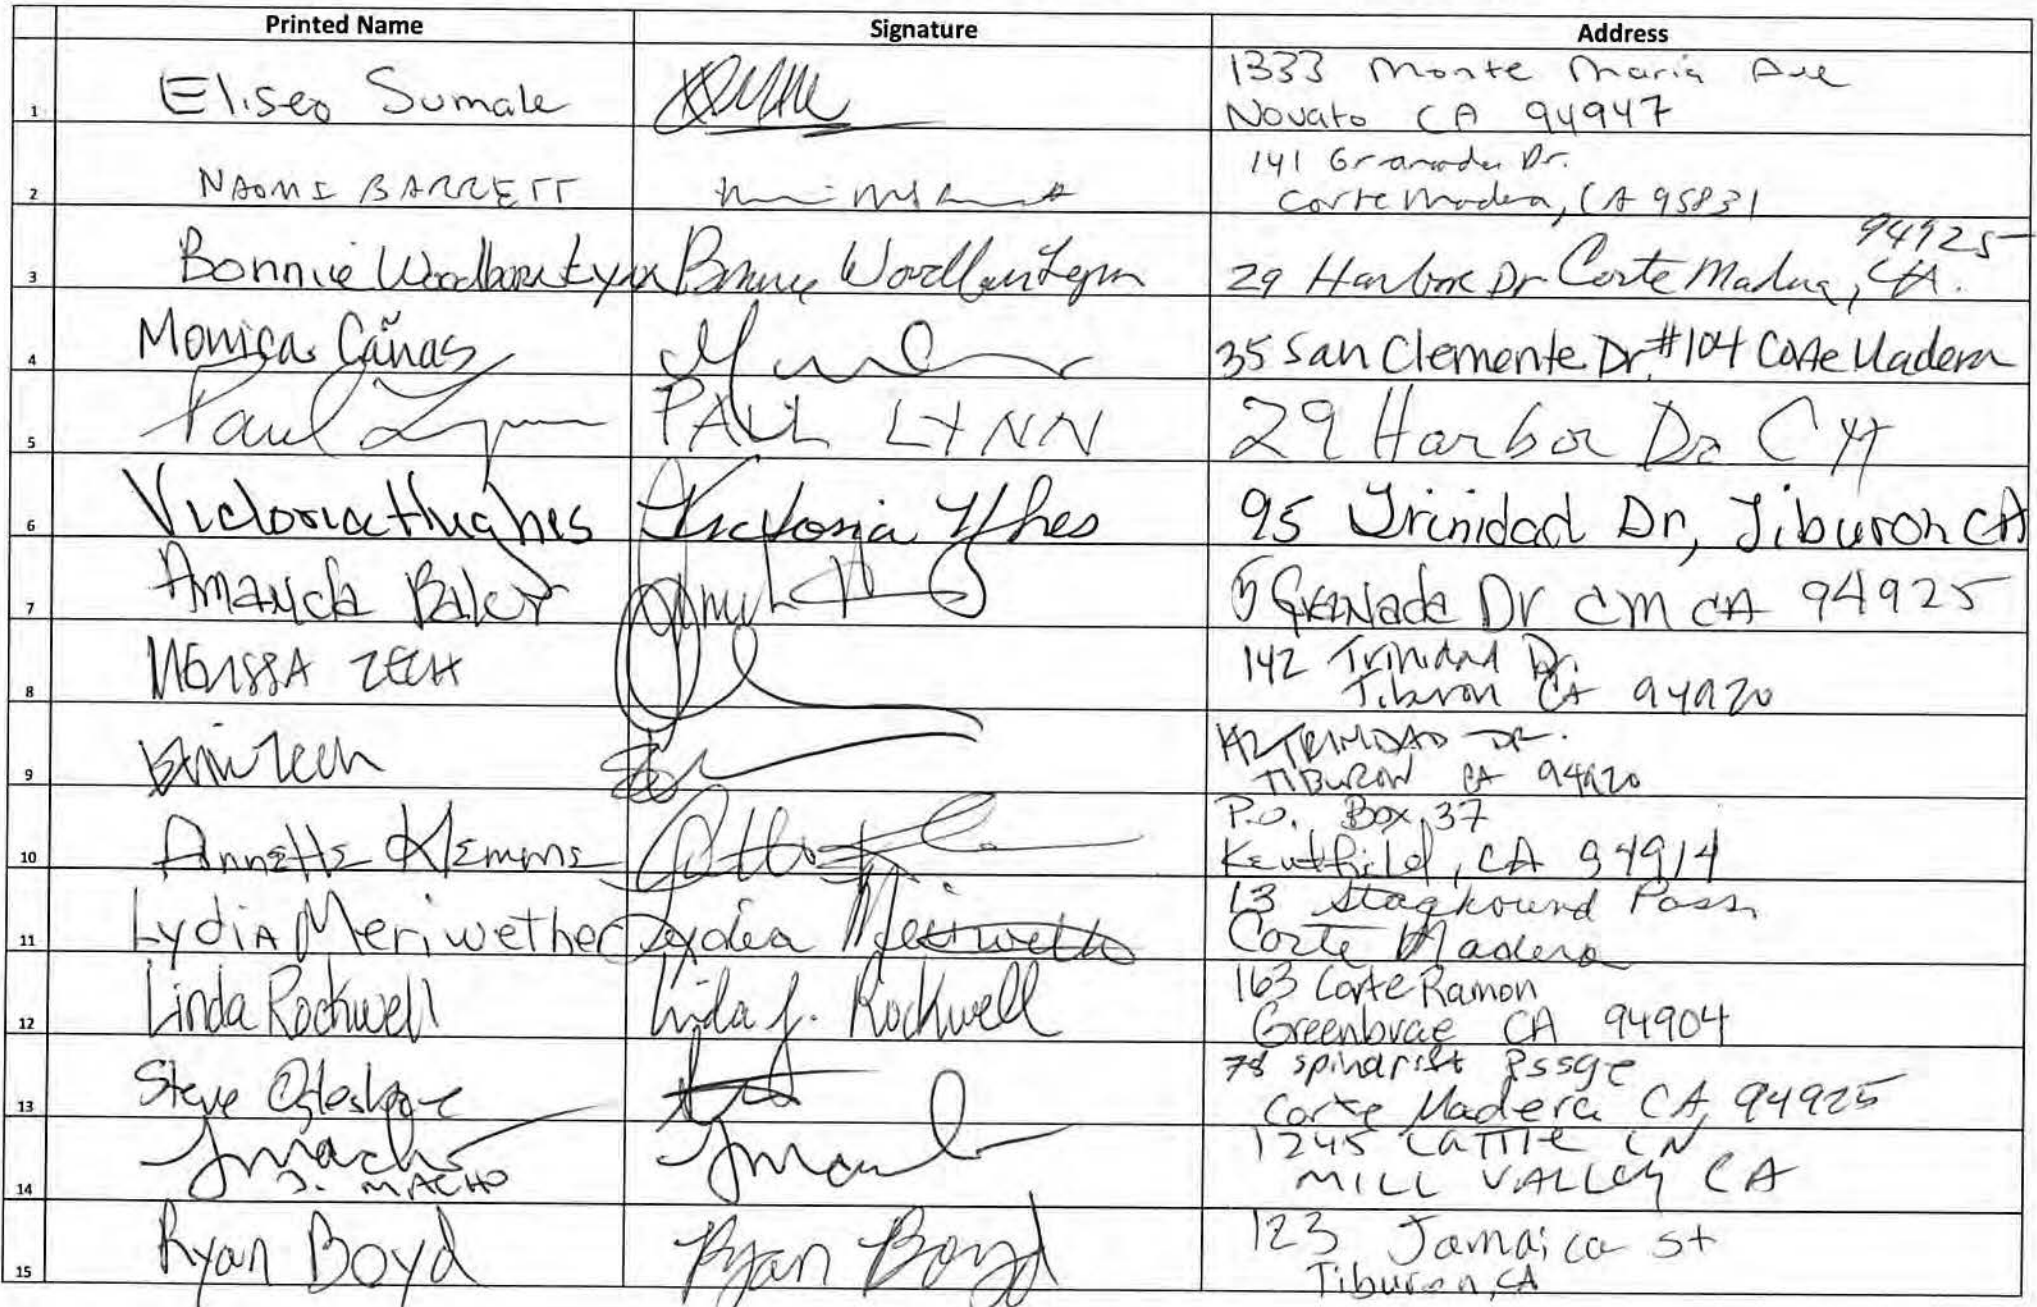 Printed Name Signature Address
1 Eliseo Sumale 1333 Monte Maria Ave
Novato CA 94947
2 NAOMI BARRETT 141 Granada Dr.
Corte Madera, CA 95831
94925
3 Bonnie Lynn Bonnie 29 Harbor Dr Corte Madera, CA.
4 Monica Cañas 35 San Clemente Dr. #104 Corte Madera
5 Paul Lynn PAUL LYNN 29 Harbor Dr
6 Victoria Hughes Victoria 95 Trinidad Dr, Tiburon CA
7 Amanda 5 GRANada Dr CM CA 94925
8 ZECH 142 Trinidad Dr.
Tiburon CA 94920
9 Zech TRINIDAD DR.
TIBURON CA 94920
10 Annette P.O. Box 37
Kentfield, CA 94914
11 Lydia Meriwether Lydia Meriwether 13 Staghound Pass
Corte Madera
12 Linda Rockwell Linda J. Rockwell 163 Corte Ramon
Greenbrae CA 94904
13 Steve 78 spindrift Pssge
Corte Madera CA 94925
14 J. MACHO 1245 LN
MILL VALLEY CA
15 Ryan Boyd Ryan Boyd 123 Jamaica St
Tiburon, CA